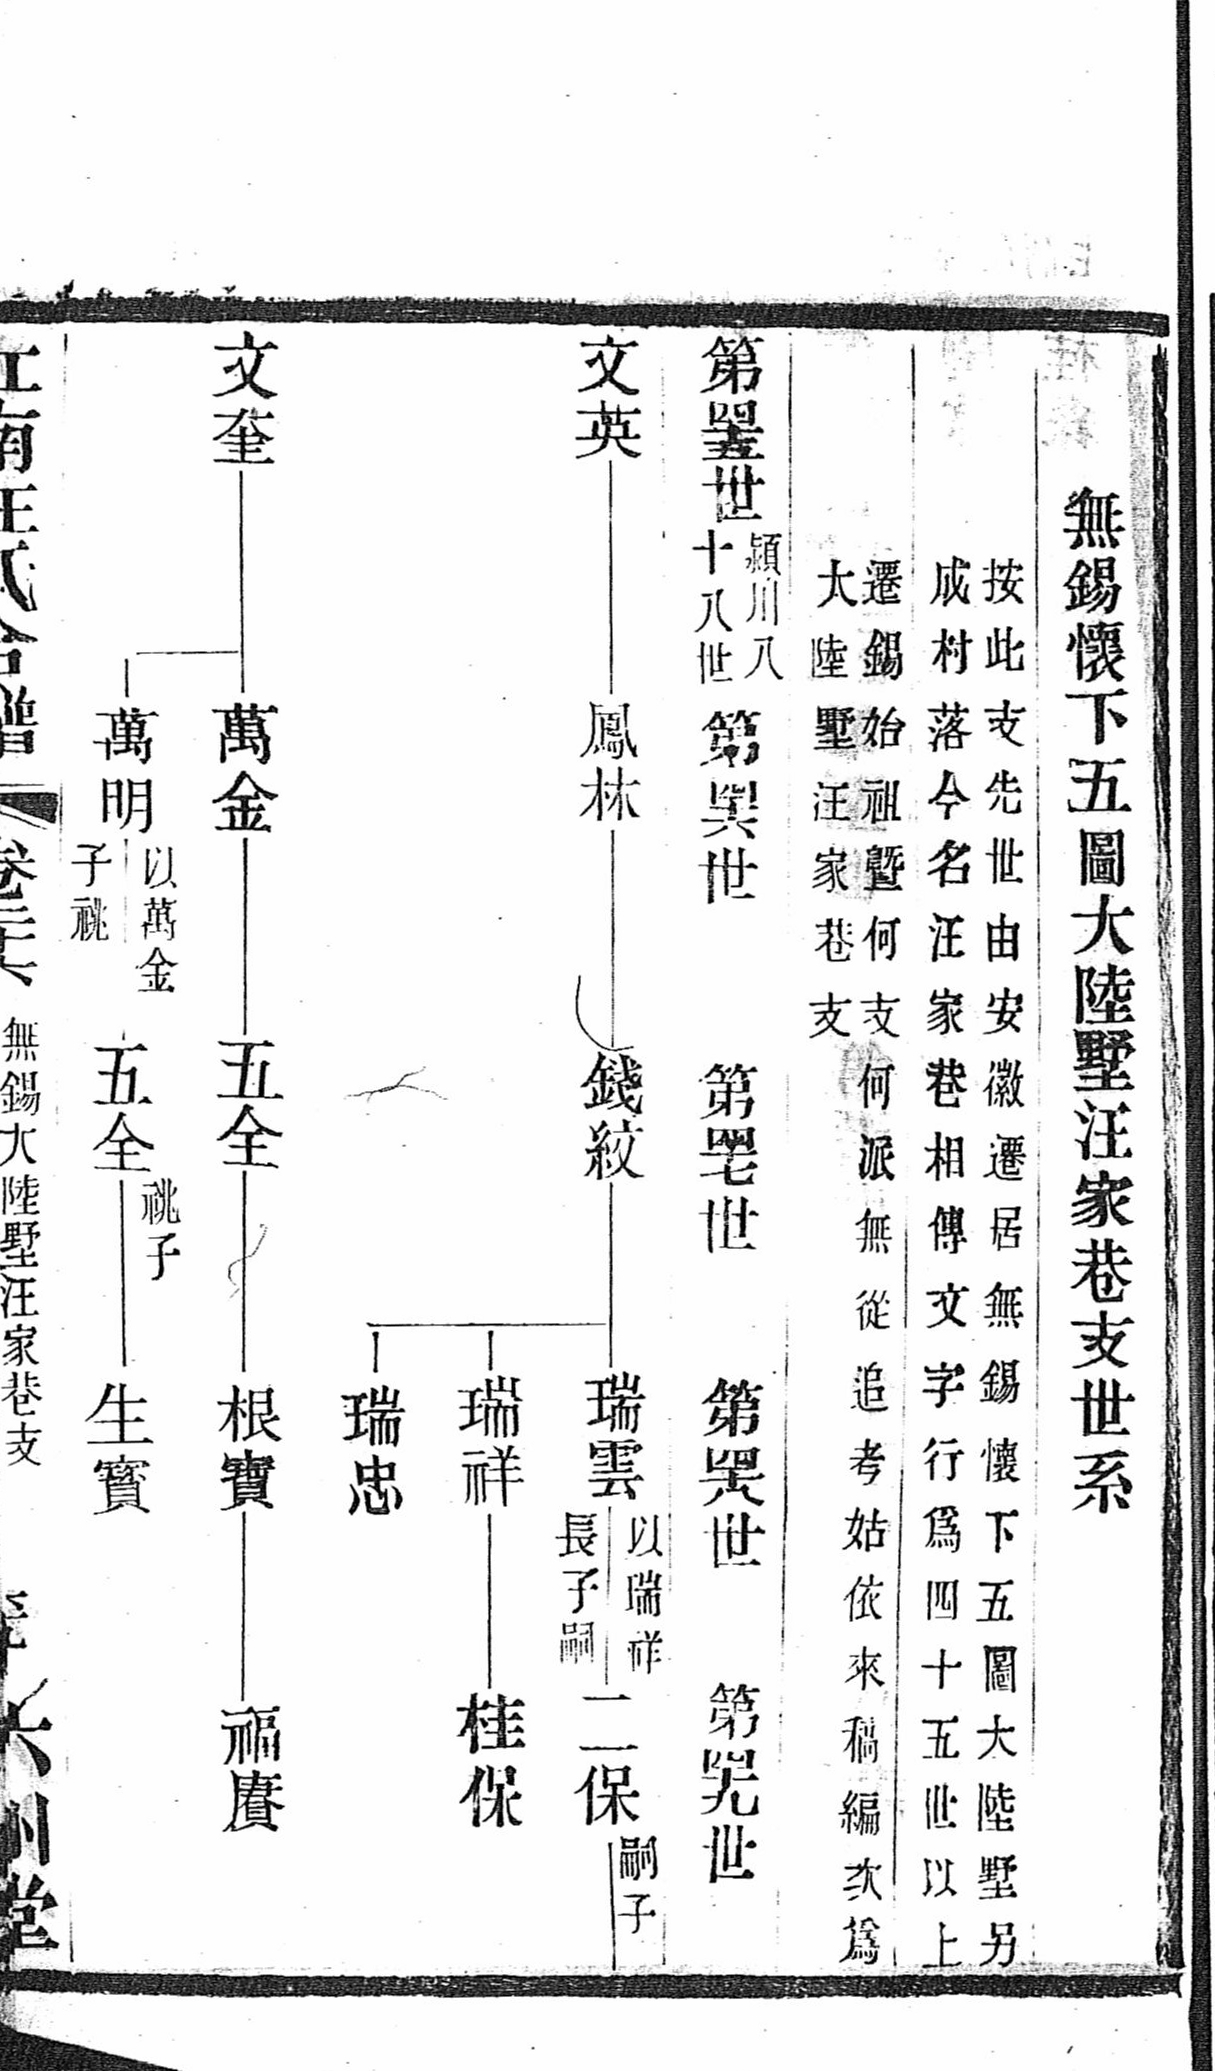 無錫懷下五圖大陸墅汪家巷支世系
按此支先世由安徽遷居無錫懷下五圖大陸墅另
成村落今名汪家巷相傳文字行爲四十五世以上
遷錫始祖曁何支何派無從追考姑依來稿編次爲
大陸墅汪家巷支
第䦉世 潁川八十八世 第𦊅世 第𦉭世 第𦊆世 第𦊇世
文英 鳳林 錢紋 瑞雲 以瑞祥長子嗣 二保 嗣子
瑞祥 桂保
瑞忠
文奎 萬金 五全 根寶 福賡
萬明 以萬金子祧 五全 祧子 生寶
江南汪氏合譜 卷二六 無錫大陸墅汪家巷支